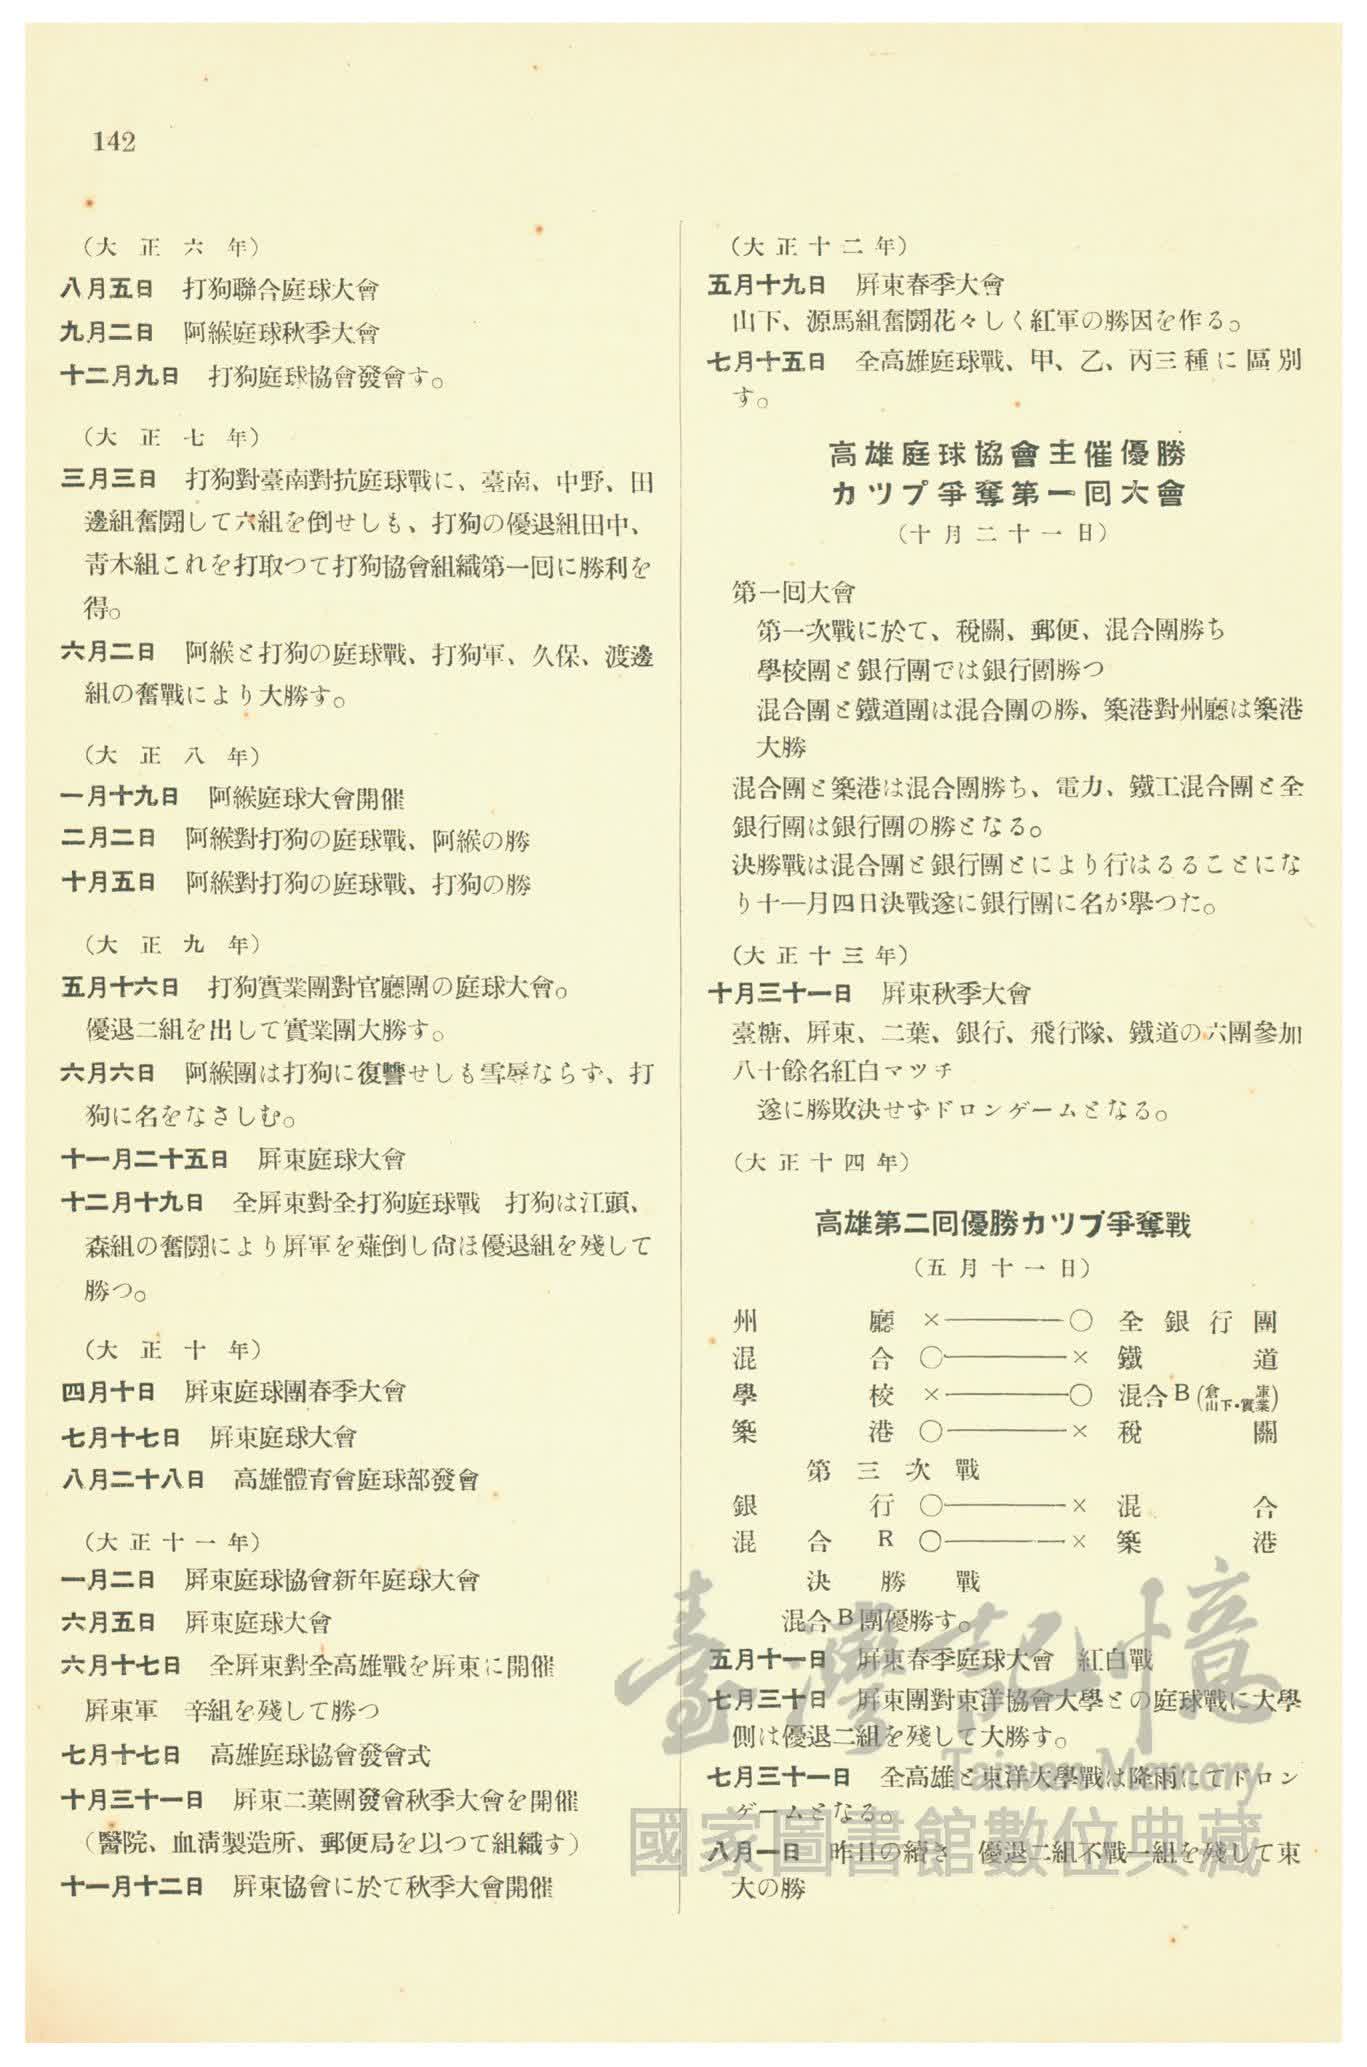 142
（大正六年）
八月五日　打狗聯合庭球大會
九月二日　阿緱庭球秋季大會
十二月九日　打狗庭球協會發會す。
（大正七年）
三月三日　打狗對臺南對抗庭球戰に、臺南、中野、田
邊組奮鬪して六組を倒せしも、打狗の優退組田中、
靑木組これを打取つて打狗協會組織第一囘に勝利を
得。
六月二日　阿緱と打狗の庭球戰、打狗軍、久保、渡邊
組の奮戰により大勝す。
（大正八年）
一月十九日　阿緱庭球大會開催
二月二日　阿緱對打狗の庭球戰、阿緱の勝
十月五日　阿緱對打狗の庭球戰、打狗の勝
（大正九年）
五月十六日　打狗實業團對官廳團の庭球大會。
優退二組を出して實業團大勝す。
六月六日　阿緱團は打狗に復讐せしも雪辱ならず、打
狗に名をなさしむ。
十一月二十五日　屛東庭球大會
十二月十九日　全屛東對全打狗庭球戰　打狗は江頭、
森組の奮鬪により屛軍を薙倒し尙ほ優退組を殘して
勝つ。
（大正十年）
四月十日　屛東庭球團春季大會
七月十七日　屛東庭球大會
八月二十八日　高雄體育會庭球部發會
（大正十一年）
一月二日　屛東庭球協會新年庭球大會
六月五日　屛東庭球大會
六月十七日　全屛東對全高雄戰を屛東に開催
屛東軍　辛組を殘して勝つ
七月十七日　高雄庭球協會發會式
十月三十一日　屛東二葉團發會秋季大會を開催
（醫院、血淸製造所、郵便局を以つて組織す）
十一月十二日　屛東協會に於て秋季大會開催
（大正十二年）
五月十九日　屛東春季大會
山下、源馬組奮鬪花々しく紅軍の勝因を作る。
七月十五日　全高雄庭球戰、甲、乙、丙三種に區別
す。
高雄庭球協會主催優勝
カツプ爭奪第一囘大會
（十月二十一日）
第一囘大會
第一次戰に於て、稅關、郵便、混合團勝ち
學校團と銀行團では銀行團勝つ
混合團と鐵道團は混合團の勝、築港對州廳は築港
大勝
混合團と築港は混合團勝ち、電力、鐵工混合團と全
銀行團は銀行團の勝となる。
決勝戰は混合團と銀行團とにより行はるることにな
り十一月四日決戰遂に銀行團に名が擧つた。
（大正十三年）
十月三十一日　屛東秋季大會
臺糖、屛東、二葉、銀行、飛行隊、鐵道の六團參加
八十餘名紅白マツチ
遂に勝敗決せずドロンゲームとなる。
（大正十四年）
高雄第二囘優勝カツプ爭奪戰
（五月十一日）
州廳 ×―――○ 全銀行團
混合 ○―――× 鐵道
學校 ×―――○ 混合B（倉庫山下・實業）
築港 ○―――× 稅關
第三次戰
銀行 ○―――× 混合
混合R ○―――× 築港
決勝戰
混合B團優勝す。
五月十一日　屛東春季庭球大會　紅白戰
七月三十日　屛東團對東洋協會大學との庭球戰に大學
側は優退二組を殘して大勝す。
七月三十一日　全高雄と東洋大學戰は降雨にてドロン
ゲームとなる。
八月一日　昨日の續き　優退二組不戰一組を殘して東
大の勝
臺灣記憶
Taiwan Memory
國家圖書館數位典藏